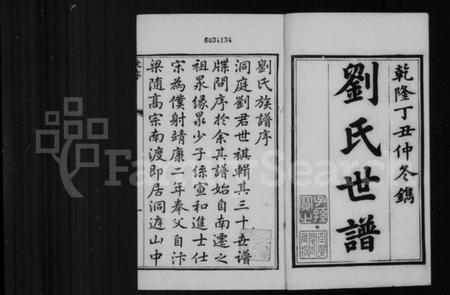 6034134
乾隆丁丑仲冬鐫
劉氏世譜
劉氏族譜序
洞庭劉君世祺輯其三十世譜
牒問序於余其譜始自南遷之
祖泉緣泉少子係宣和進士仕
宋為僕射靖康二年奉父自汴
梁随高宗南渡即居洞庭山中
FamilySearch